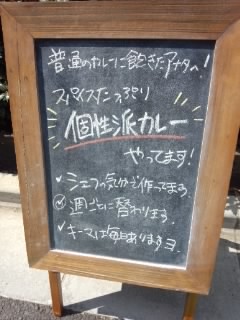 普通のカレーに飽きたアナタへ!
スパイスたっぷり
個性派カレー
やってます!
✓シェフの気分で作ってます。
✓週ごとに替わります
✓キーマは毎日ありますヨ